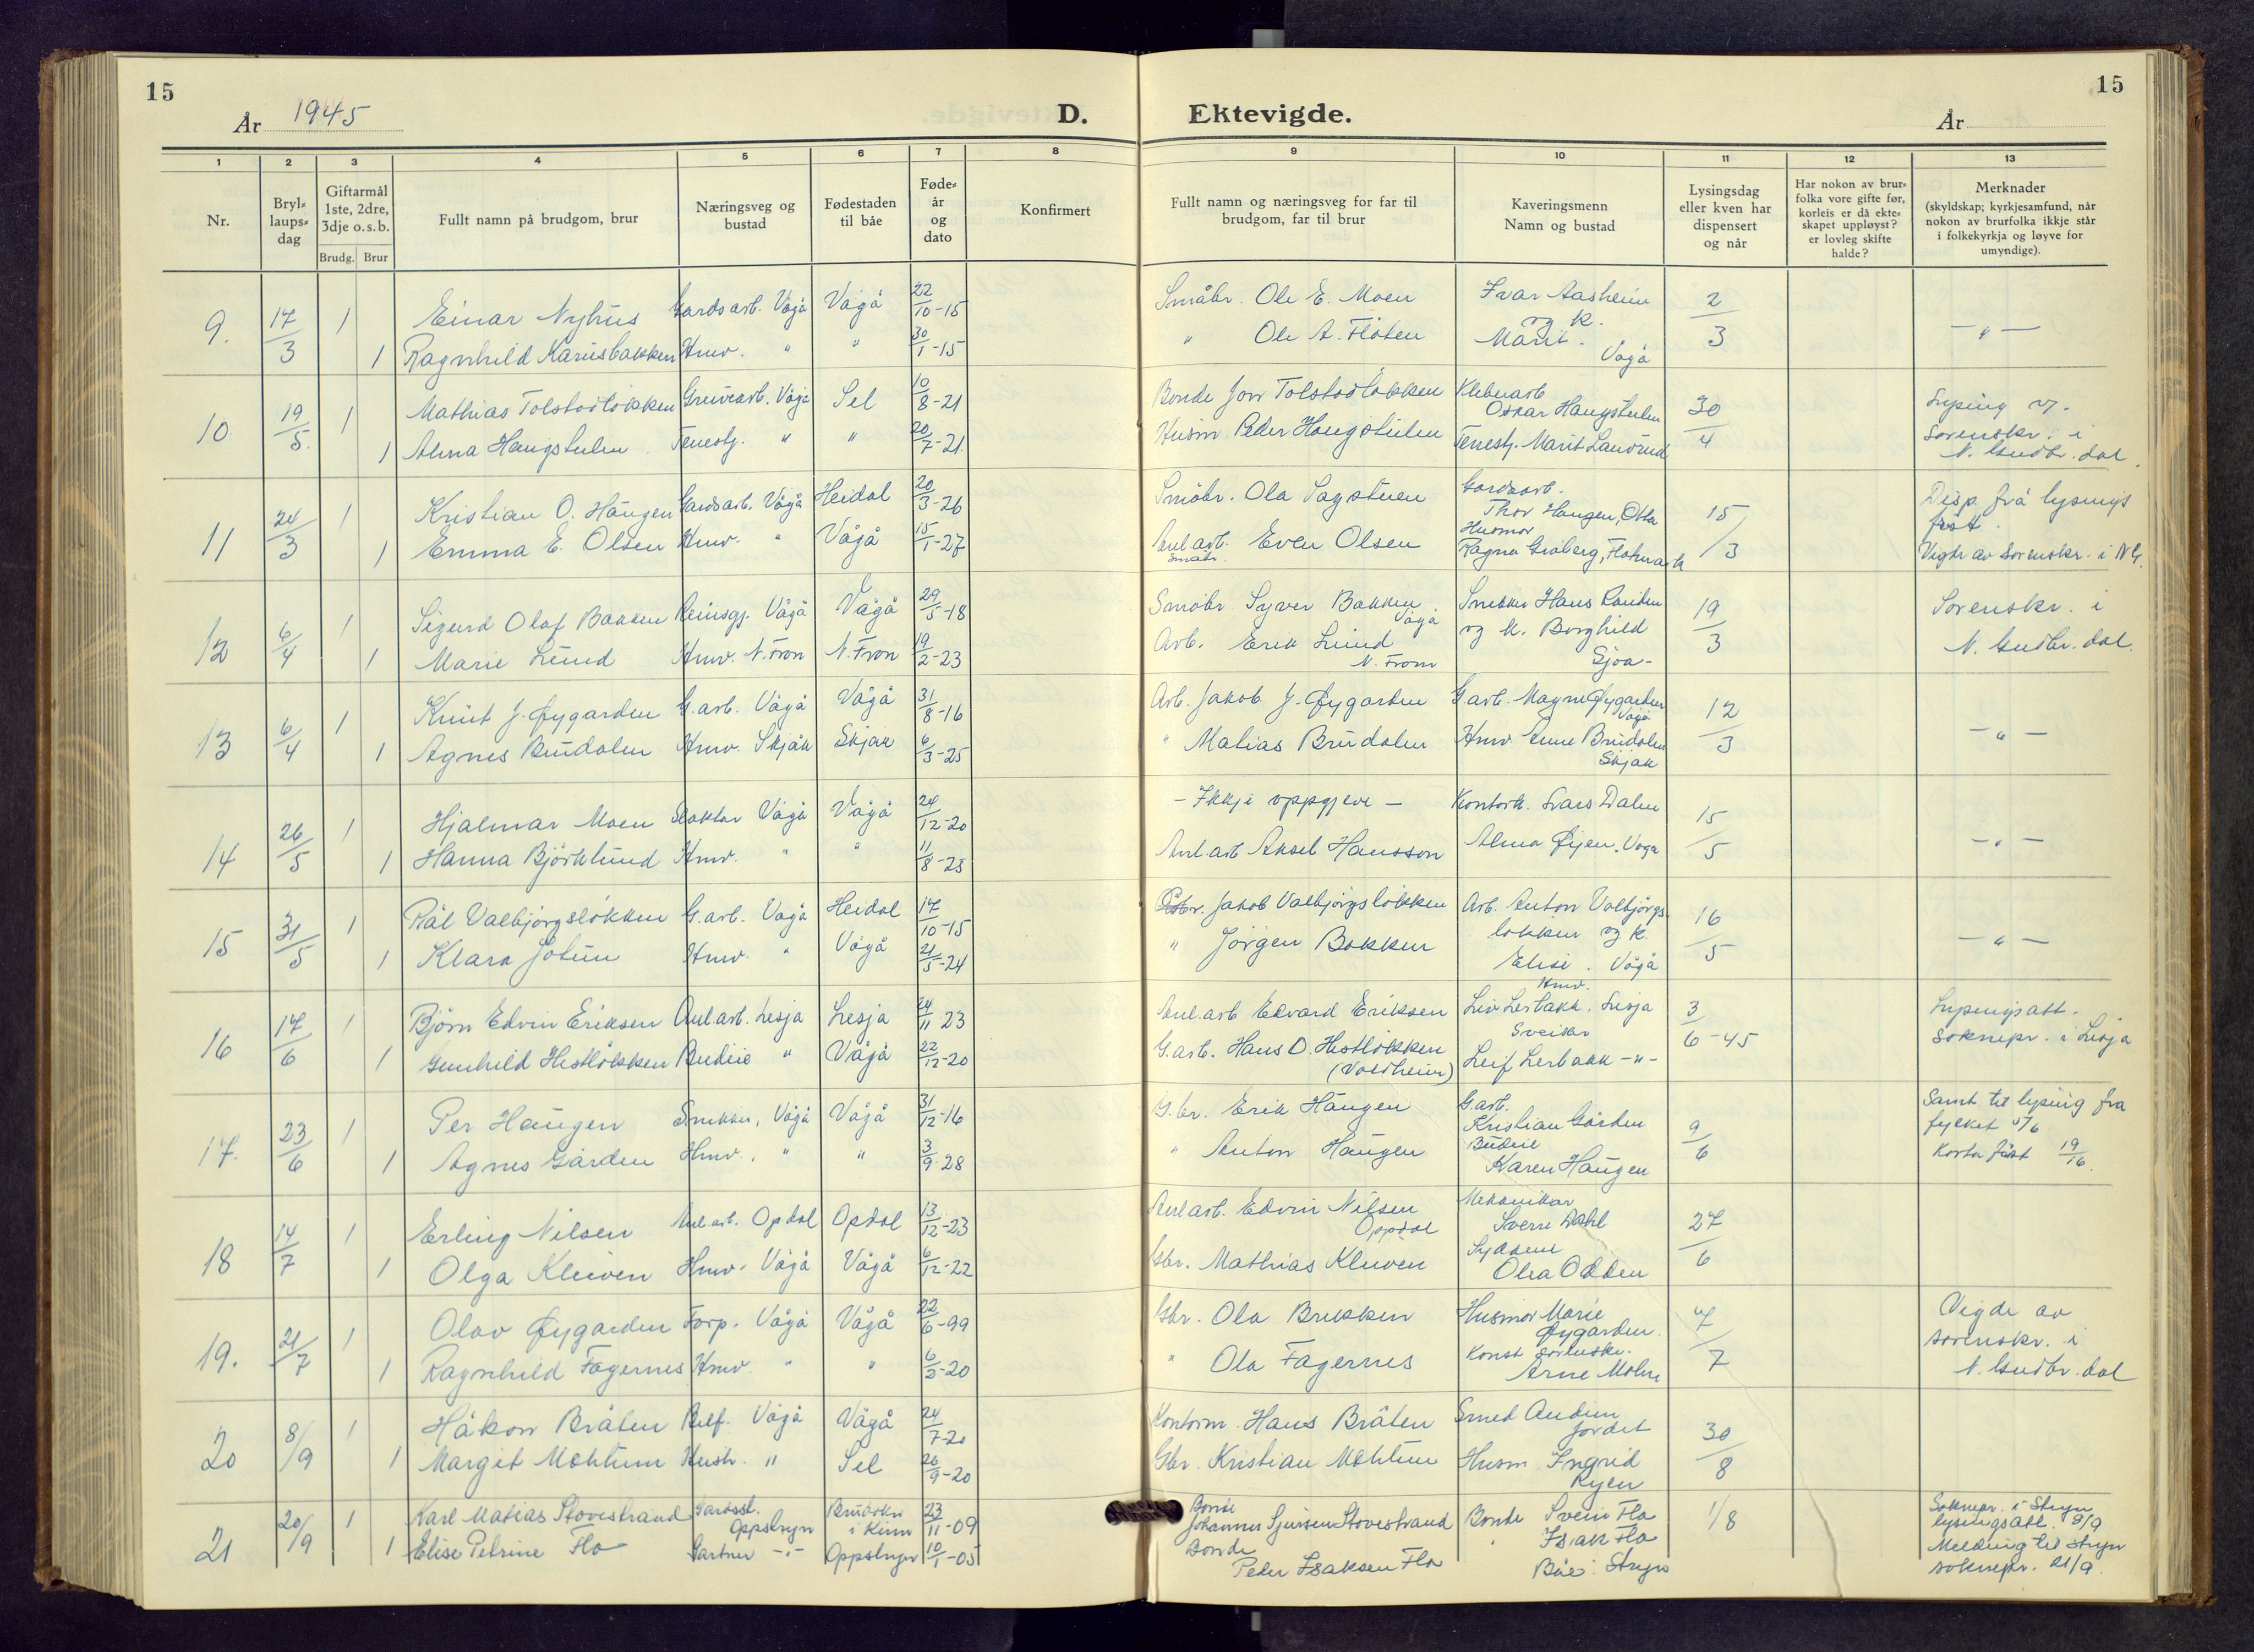 15
År 1945
D.
Ektevigde.
År
15
1 2 3 4 5 6 7 8 9 10 11 12 13
Nr.
Bryl-
laups-
dag
Giftarmål
1ste, 2dre,
3dje o.s.b.
Brudg. Brur
Fullt namn på brudgom, brur
Næringsveg og
bustad
Fødestaden
til båe
Føde-
år
og
dato
Konfirmert
Fullt namn og næringsveg for far til
brudgom, far til brur
Kaveringsmenn
Namn og bustad
Lysingsdag
eller kven har
dispensert
og når
Har nokon av brur-
folka vore gifte før,
korleis er då ekte-
skapet uppløyst?
er lovleg skifte
halde?
Merknader
(skyldskap; kyrkjesamfund, når
nokon av brurfolka ikkje står
i folkekyrkja og løyve for
umyndige).
9. 17/3 1 Einar Nyhus Gardsarb. Vågå Vågå 22/10-15 Småbr. Ole E. Moen Ivar Aasheim 2/3 -"-
og k.
1 Ragnhild Karusbakken Hmv. " " 30/1-15 " Ole A. Flåten Marit. Vågå
10. 19/5. 1 Mathias Tolstadløkken Gruvearb. Vågå Sel 10/8-21 Bonde Jon Tolstadløkken Kleberarb 30/4
Oskar Haugstulen
1 Alma Haugstulen Tenestj. " " 20/7-21 Husm Peder Haugstulen Tenestj. Marit Landrud
sorenskr. i
N. Gudbr. dal.
11 24/3 1 Kristian O. Haugen Gardsarb. Vågå Heidal 20/3-26 Småbr. Ola Sagstuen Gardsarb. 15/3 Disp frå lysings
Thor Haugen, Otta frist.
1 Emma E. Olsen Hmv. " Vågå 15/1-27 Anl.arb. Even Olsen Husmor
småbr. Ragna Flatmark
Vigde av Sorenskr. i NG.
12 6/4 1 Sigurd Olaf Bakken Reinsgj. Vågå Vågå 29/5-18 Småbr Syver Bakken, Vågå Snekker Hans Randen 19/3 Sorenskr. i
og k. Borghild
1 Marie Lund Hmv. N. Fron N. Fron 19/2-23 Arb. Erik Lund N. Fron Sjoa- N. Gudbr. dal.
13 6/4 1 Knut J. Øygarden G.arb. Vågå Vågå 31/8-16 Arb. Jakob J. Øygarden G.arb. Magne Øygarden Vågå 12/3 -"-
1 Agnes Brudalen Hmv. Skjåk Skjåk 6/3-25 " Matias Brudalen Hmv. Anne Brudalen
Skjåk
14 26/5 1 Hjalmar Moen Slaktar Vågå Vågå 24/12-20 - Ikkje oppgjeve - Kontork. Lars Dalen 15/5 -"-
1 Hanna Björklund Hmv. " " 11/8-23 Anl.arb Aksel Hansson Alma Øyen, Vågå
15 31/5 1 Pål Valbjørgsløkken G.arb. Vågå Heidal 17/10-15 Jakob Valbjørgsløkken Arb. Anton Valbjørgs- 16/5 -"-
løkken og k.
1 Klara Jotun Hmv. " Vågå 21/5-24 " Jørgen Bakken Elise. Vågå
16 17/6 1 Björn Edvin Eriksen Anl.arb. Lesja Lesja 24/11 23 Anl.arb Edvard Eriksen Hmv. 3/6-45 Lysingsatt.
Liv Lerbakk. Lesja
Sveiser
1 Gunhild Hestløkken Budeie " Vågå 22/12-20 G.arb. Hans O. Hestløkken Leif Lerbakk -"- soknepr. i Lesja
(Voldheim)
17. 23/6 1 Per Haugen Snekker, Vågå Vågå 31/12-16 G.br. Erik Haugen G.arb. 9/6 Samt. til lysing fra
Kristian Gården fylket
Budeie
1 Agnes Gården Hmv., " " 3/9-28 " Anton Haugen Karen Haugen Korta frist
18 14/7 1 Erling Nilsen Anl.arb. Opdal Opdal 13/12-23 Anl.arb. Edvin Nilsen Mekanikar 27/6
Oppdal Sverre Dahl
1 Olga Kleiven Hmv. Vågå Vågå 6/12-22 Gbr. Mathias Kleiven Olea Odden
19. 21/7 1 Olav Øygarden Forp. Vågå Vågå 22/6-99 Gbr. Ola Brekken Husmor Marie 7/7 Vigde av
Øygarden. sorenskr. i
1 Ragnhild Fagernes Hmv. " " 6/2-20 " Ola Fagernes Konst sorenskr.
Arne N. Gudbr. dal
20 8/9 1 Håkon Bråten Vågå Vågå 24/7-20 Kontorm. Hans Bråten Smed Audun 30/8
Jordet
1 Margit " Sel 26/9-20 Gbr. Kristian Husm Ingrid
Ryen
21 20/9 1 Karl Matias Stovestrand Gardsst. Bruosker 23/11-09 Bonde Bonde Svein Flo 1/8 Soknepr. i Stryn
Oppstryn i Kinn Johannes Sjursen Stovestrand lysingsatt. 8/9
1 Elise Petrine Flo Gartner -"- Oppstryn 10/1-05 Bonde " Isak Flo Melding til Stryn
Peder Isaksen Flo Båe: Stryn soknepr. 21/9.